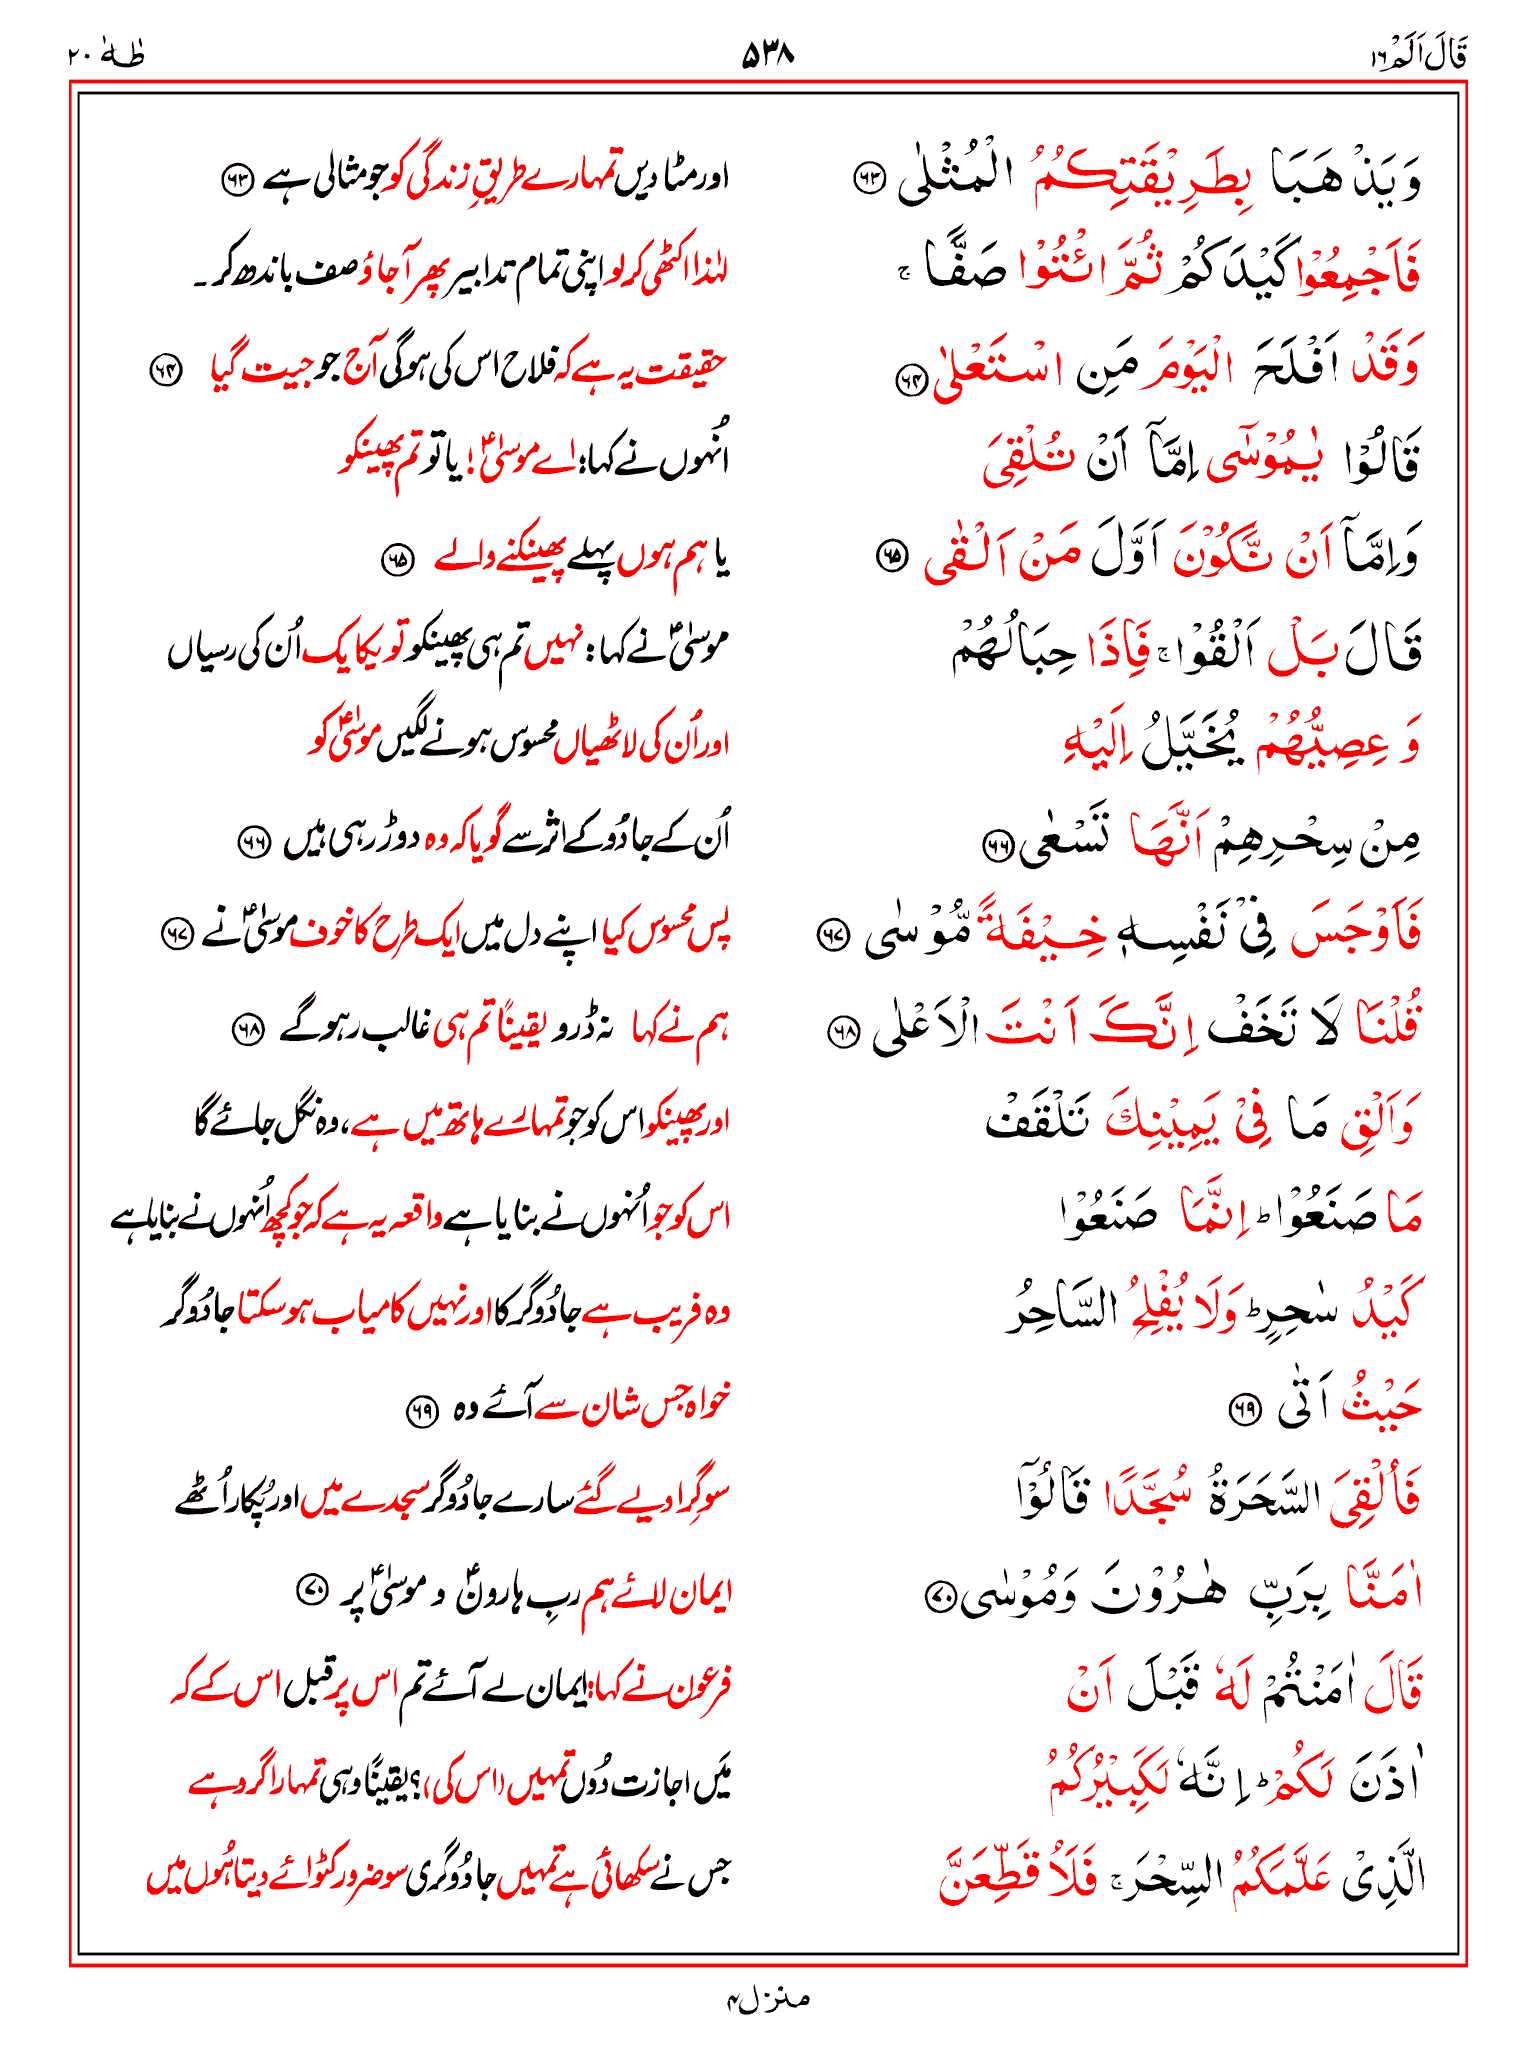 قَالَ اَلَمْ ۱۶ ۵۳۸ طٰهٰ ۲۰
وَيَذْهَبَا بِطَرِيْقَتِكُمُ الْمُثْلٰى ۶۳ اور مٹا دیں تمہارے طریقِ زندگی کو جو مثالی ہے ۶۳
فَاَجْمِعُوْا كَيْدَكُمْ ثُمَّ ائْتُوْا صَفًّا ۚ لہٰذا اکٹھی کر لو اپنی تمام تدابیر پھر آ جاؤ صف باندھ کر۔
وَقَدْ اَفْلَحَ الْيَوْمَ مَنِ اسْتَعْلٰى ۶۴ حقیقت یہ ہے کہ فلاح اس کی ہوگی آج جو جیت گیا ۶۴
قَالُوْا يٰمُوْسٰٓى اِمَّآ اَنْ تُلْقِىَ اُنہوں نے کہا: اے موسیٰؑ! یا تو تم پھینکو
وَاِمَّآ اَنْ نَّكُوْنَ اَوَّلَ مَنْ اَلْقٰى ۶۵ یا ہم ہوں پہلے پھینکنے والے ۶۵
قَالَ بَلْ اَلْقُوْا ۚ فَاِذَا حِبَالُهُمْ موسیٰؑ نے کہا: نہیں تم ہی پھینکو تو یکایک اُن کی رسیاں
وَ عِصِيُّهُمْ يُخَيَّلُ اِلَيْهِ اور اُن کی لاٹھیاں محسوس ہونے لگیں موسیٰؑ کو
مِنْ سِحْرِهِمْ اَنَّهَا تَسْعٰى ۶۶ اُن کے جادُو کے اثر سے گویا کہ وہ دوڑ رہی ہیں ۶۶
فَاَوْجَسَ فِىْ نَفْسِهٖ خِيْفَةً مُّوْسٰى ۶۷ پس محسوس کیا اپنے دل میں ایک طرح کا خوف موسیٰؑ نے ۶۷
قُلْنَا لَا تَخَفْ اِنَّكَ اَنْتَ الْاَعْلٰى ۶۸ ہم نے کہا نہ ڈرو یقیناً تم ہی غالب رہو گے ۶۸
وَاَلْقِ مَا فِىْ يَمِيْنِكَ تَلْقَفْ اور پھینکو اس کو جو تمہارے ہاتھ میں ہے، وہ نگل جائے گا
مَا صَنَعُوْا ؕ اِنَّمَا صَنَعُوْا اس کو جو اُنہوں نے بنایا ہے واقعہ یہ ہے کہ جو کچھ اُنہوں نے بنایا ہے
كَيْدُ سٰحِرٍ ؕ وَلَا يُفْلِحُ السَّاحِرُ وہ فریب ہے جادُوگر کا اور نہیں کامیاب ہو سکتا جادُوگر
حَيْثُ اَتٰى ۶۹ خواہ جس شان سے آئے وہ ۶۹
فَاُلْقِىَ السَّحَرَةُ سُجَّدًا قَالُوْٓا سو گِرا دیے گئے سارے جادُوگر سجدے میں اور پُکار اُٹھے
اٰمَنَّا بِرَبِّ هٰرُوْنَ وَمُوْسٰى ۷۰ ایمان لائے ہم ربِ ہارونؑ و موسیٰؑ پر ۷۰
قَالَ اٰمَنْتُمْ لَهٗ قَبْلَ اَنْ فرعون نے کہا: ایمان لے آئے تم اس پر قبل اس کے کہ
اٰذَنَ لَكُمْ ؕ اِنَّهٗ لَكَبِيْرُكُمُ مَیں اجازت دُوں تمہیں (اس کی)؟ یقیناً وہی تمہارا گرو ہے
الَّذِىْ عَلَّمَكُمُ السِّحْرَ ۚ فَلَاُقَطِّعَنَّ جس نے سکھائی ہے تمہیں جادُوگری سو ضرور کٹوائے دیتا ہُوں میں
منزل ۴